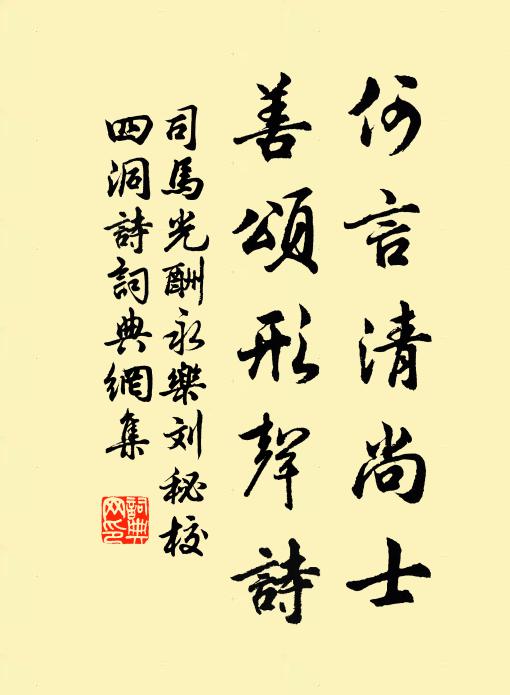 何言清尚士
善頌形聲詩
司馬光酬永樂刘秘校
四洞詩詞典網集
詞典